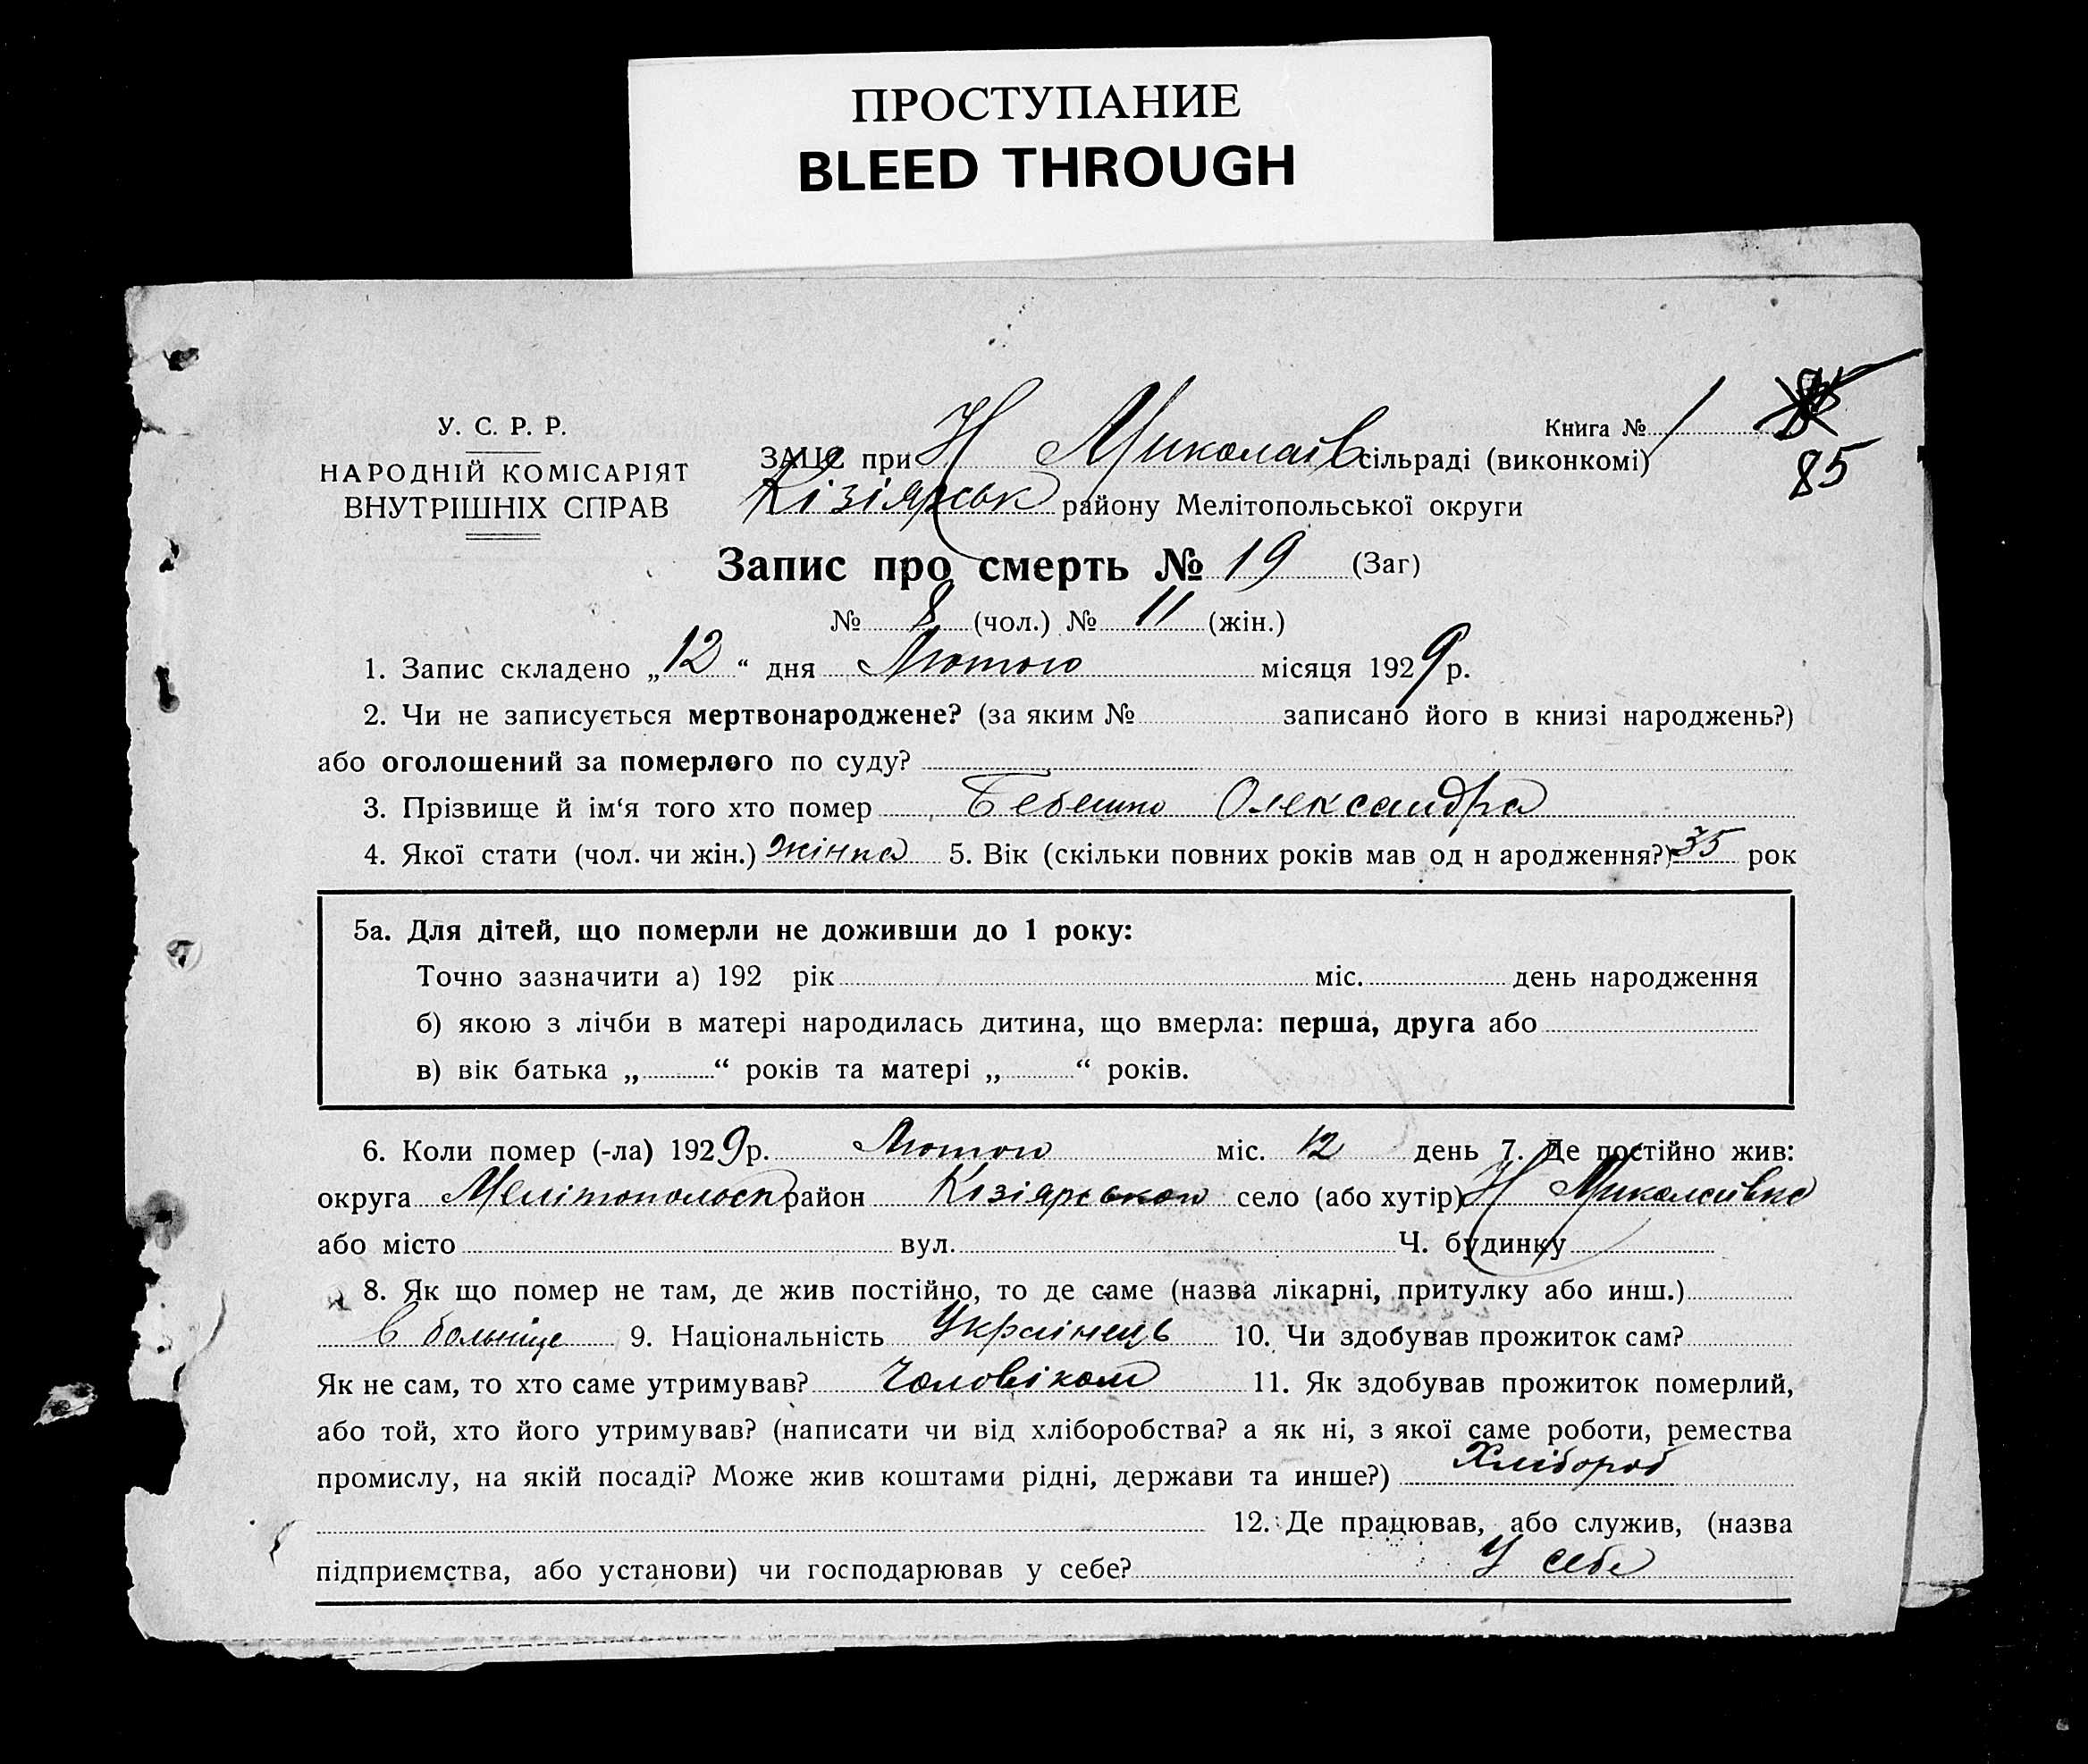 ПРОСТУПАНИЕ
BLEED THROUGH
У. С. Р. Р.
НАРОДНІЙ КОМІСАРІЯТ
ВНУТРІШНІХ СПРАВ
Книга № 1
85
ЗАЦС при Н Миколаїв сільраді (виконкомі)
Кізіярськ району Мелітопольської округи
Запис про смерть № 19 (Заг)
№ 8 (чол.) № 11 (жін.)
1. Запис складено „12“ дня Лютого місяця 1929 р.
2. Чи не записується мертвонароджене? (за яким № записано його в книзі народжень?)
або оголошений за померлого по суду?
3. Прізвище й ім‘я того хто помер Бебешко Олександра
4. Якої стати (чол. чи жін.) жінка 5. Вік (скільки повних років мав од н ародження?) 35 рок
5а. Для дітей, що померли не доживши до 1 року:
Точно зазначити а) 192 рік міс. день народження
б) якою з лічби в матері народилась дитина, що вмерла: перша, друга або
в) вік батька „ “ років та матері „ “ років.
6. Коли помер (-ла) 1929 р. Лютого міс. 12 день 7. Де постійно жив:
округа Мелітопольск район Кізіярського село (або хутір) Н Миколаївка
або місто вул. Ч. будинку
8. Як що помер не там, де жив постійно, то де саме (назва лікарні, притулку або инш.)
в больніце 9. Національність Українець 10. Чи здобував прожиток сам?
Як не сам, то хто саме утримував? Чоловіком 11. Як здобував прожиток померлий,
або той, хто його утримував? (написати чи від хліборобства? а як ні, з якої саме роботи, ремества
промислу, на якій посаді? Може жив коштами рідні, держави та инше?) Хлібороб
12. Де працював, або служив, (назва
підприємства, або установи) чи господарював у себе? У себе